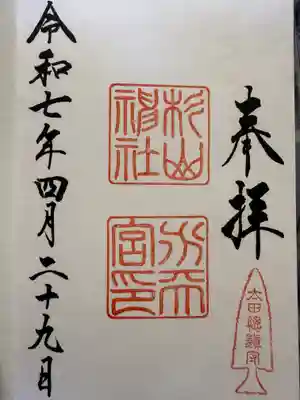 奉拝
太田總鎮守
杉山
神社
水天
宮印
令和七年四月二十九日